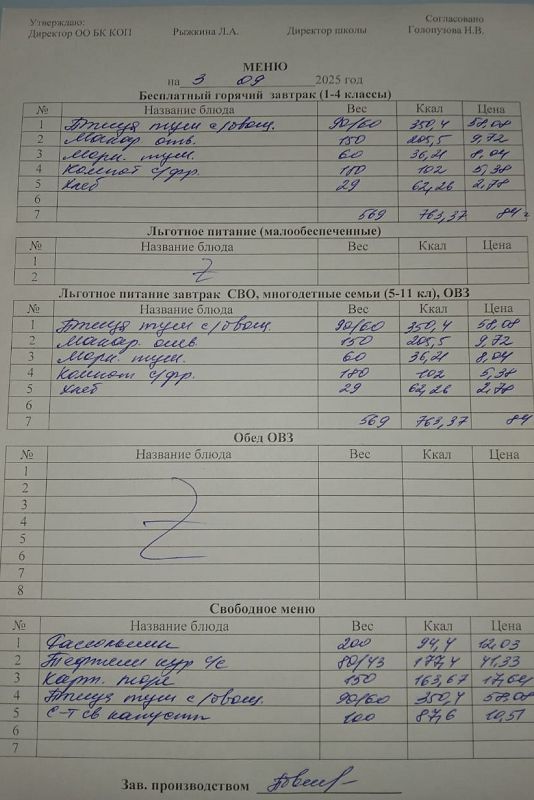 Утверждаю: Согласовано
Директор ОО БК КОП Рыжкина Л.А. Директор школы Голопузова Н.В.
МЕНЮ
на 3 09 2025 год
Бесплатный горячий завтрак (1-4 классы)
№ Название блюда Вес Ккал Цена
1 Птица туш с/овощ. 90/60 350,4 58,08
2 Макар. отв. 150 205,5 9,72
3 Морк. туш. 60 36,21 8,04
4 Компот с/фр. 180 102 5,38
5 Хлеб 29 62,26 2,78
6
7 569 763,37 84
Льготное питание (малообеспеченные)
№ Название блюда Вес Ккал Цена
1
2
Льготное питание завтрак СВО, многодетные семьи (5-11 кл), ОВЗ
№ Название блюда Вес Ккал Цена
1 Птица туш с/овощ. 90/60 350,4 58,08
2 Макар. отв 150 205,5 9,72
3 Морк. туш. 60 36,21 8,04
4 Компот с/фр. 180 102 5,38
5 Хлеб 29 62,26 2,78
6
7 569 763,37 84
Обед ОВЗ
№ Название блюда Вес Ккал Цена
1
2
3
4
5
6
7
8
Свободное меню
№ Название блюда Вес Ккал Цена
1 Рассольник 200 94,4 12,03
2 Тефтели кур с/с 80/43 177,4 41,33
3 Карт. пюре 150 163,67 17,64
4 Птица туш с/овощ. 90/60 350,4 58,08
5 С-т св капусты 100 87,6 10,51
6
7
Зав. производством